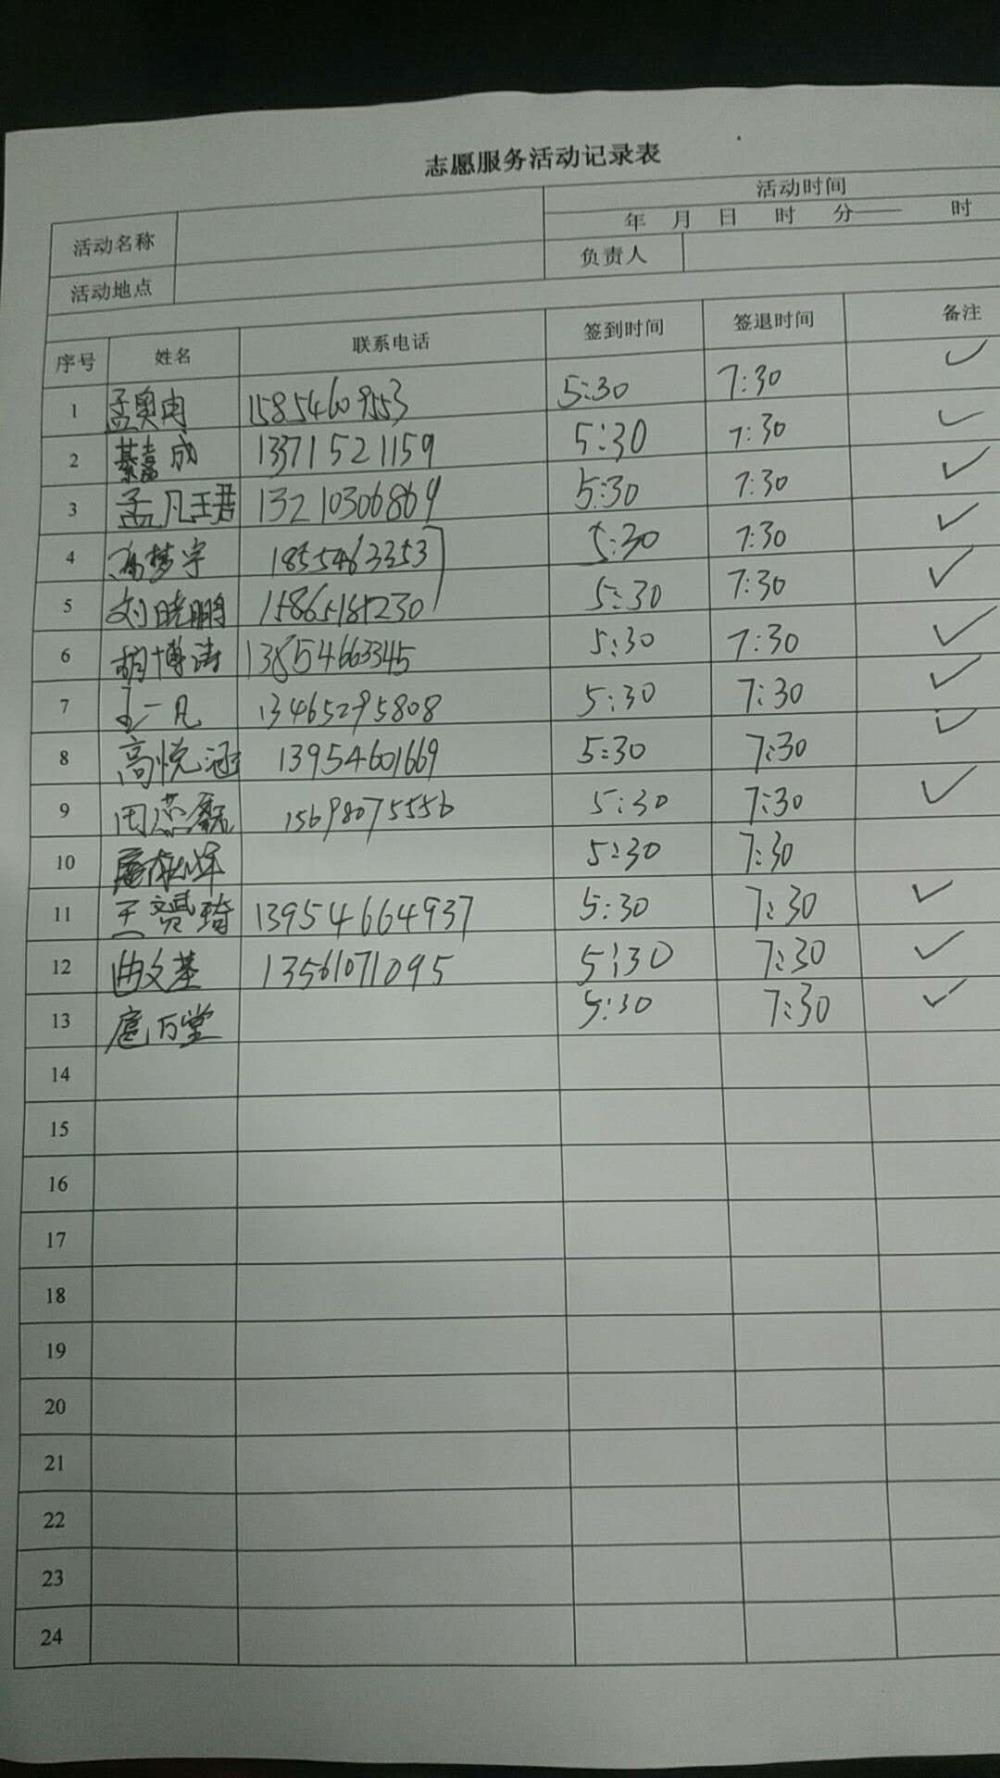 志愿服务活动记录表
活动名称 活动时间
年 月 日 时 分—— 时
活动地点 负责人
序号 姓名 联系电话 签到时间 签退时间 备注
1 孟奥冉 15854609553 5:30 7:30 ✓
2 綦嘉成 13371521159 5:30 7:30 ✓
3 孟凡珺 13210306869 5:30 7:30 ✓
4 冯梦宇 18554663353 5:30 7:30 ✓
5 刘晓鹏 15865185230 5:30 7:30 ✓
6 胡博涛 13854663345 5:30 7:30 ✓
7 王一凡 13465295808 5:30 7:30 ✓
8 高悦涵 13954601669 5:30 7:30 ✓
9 15698075556 5:30 7:30 ✓
10 5:30 7:30
11 王赟琦 13954664937 5:30 7:30 ✓
12 曲文基 13561071095 5:30 7:30 ✓
13 扈万堂 5:30 7:30 ✓
14
15
16
17
18
19
20
21
22
23
24